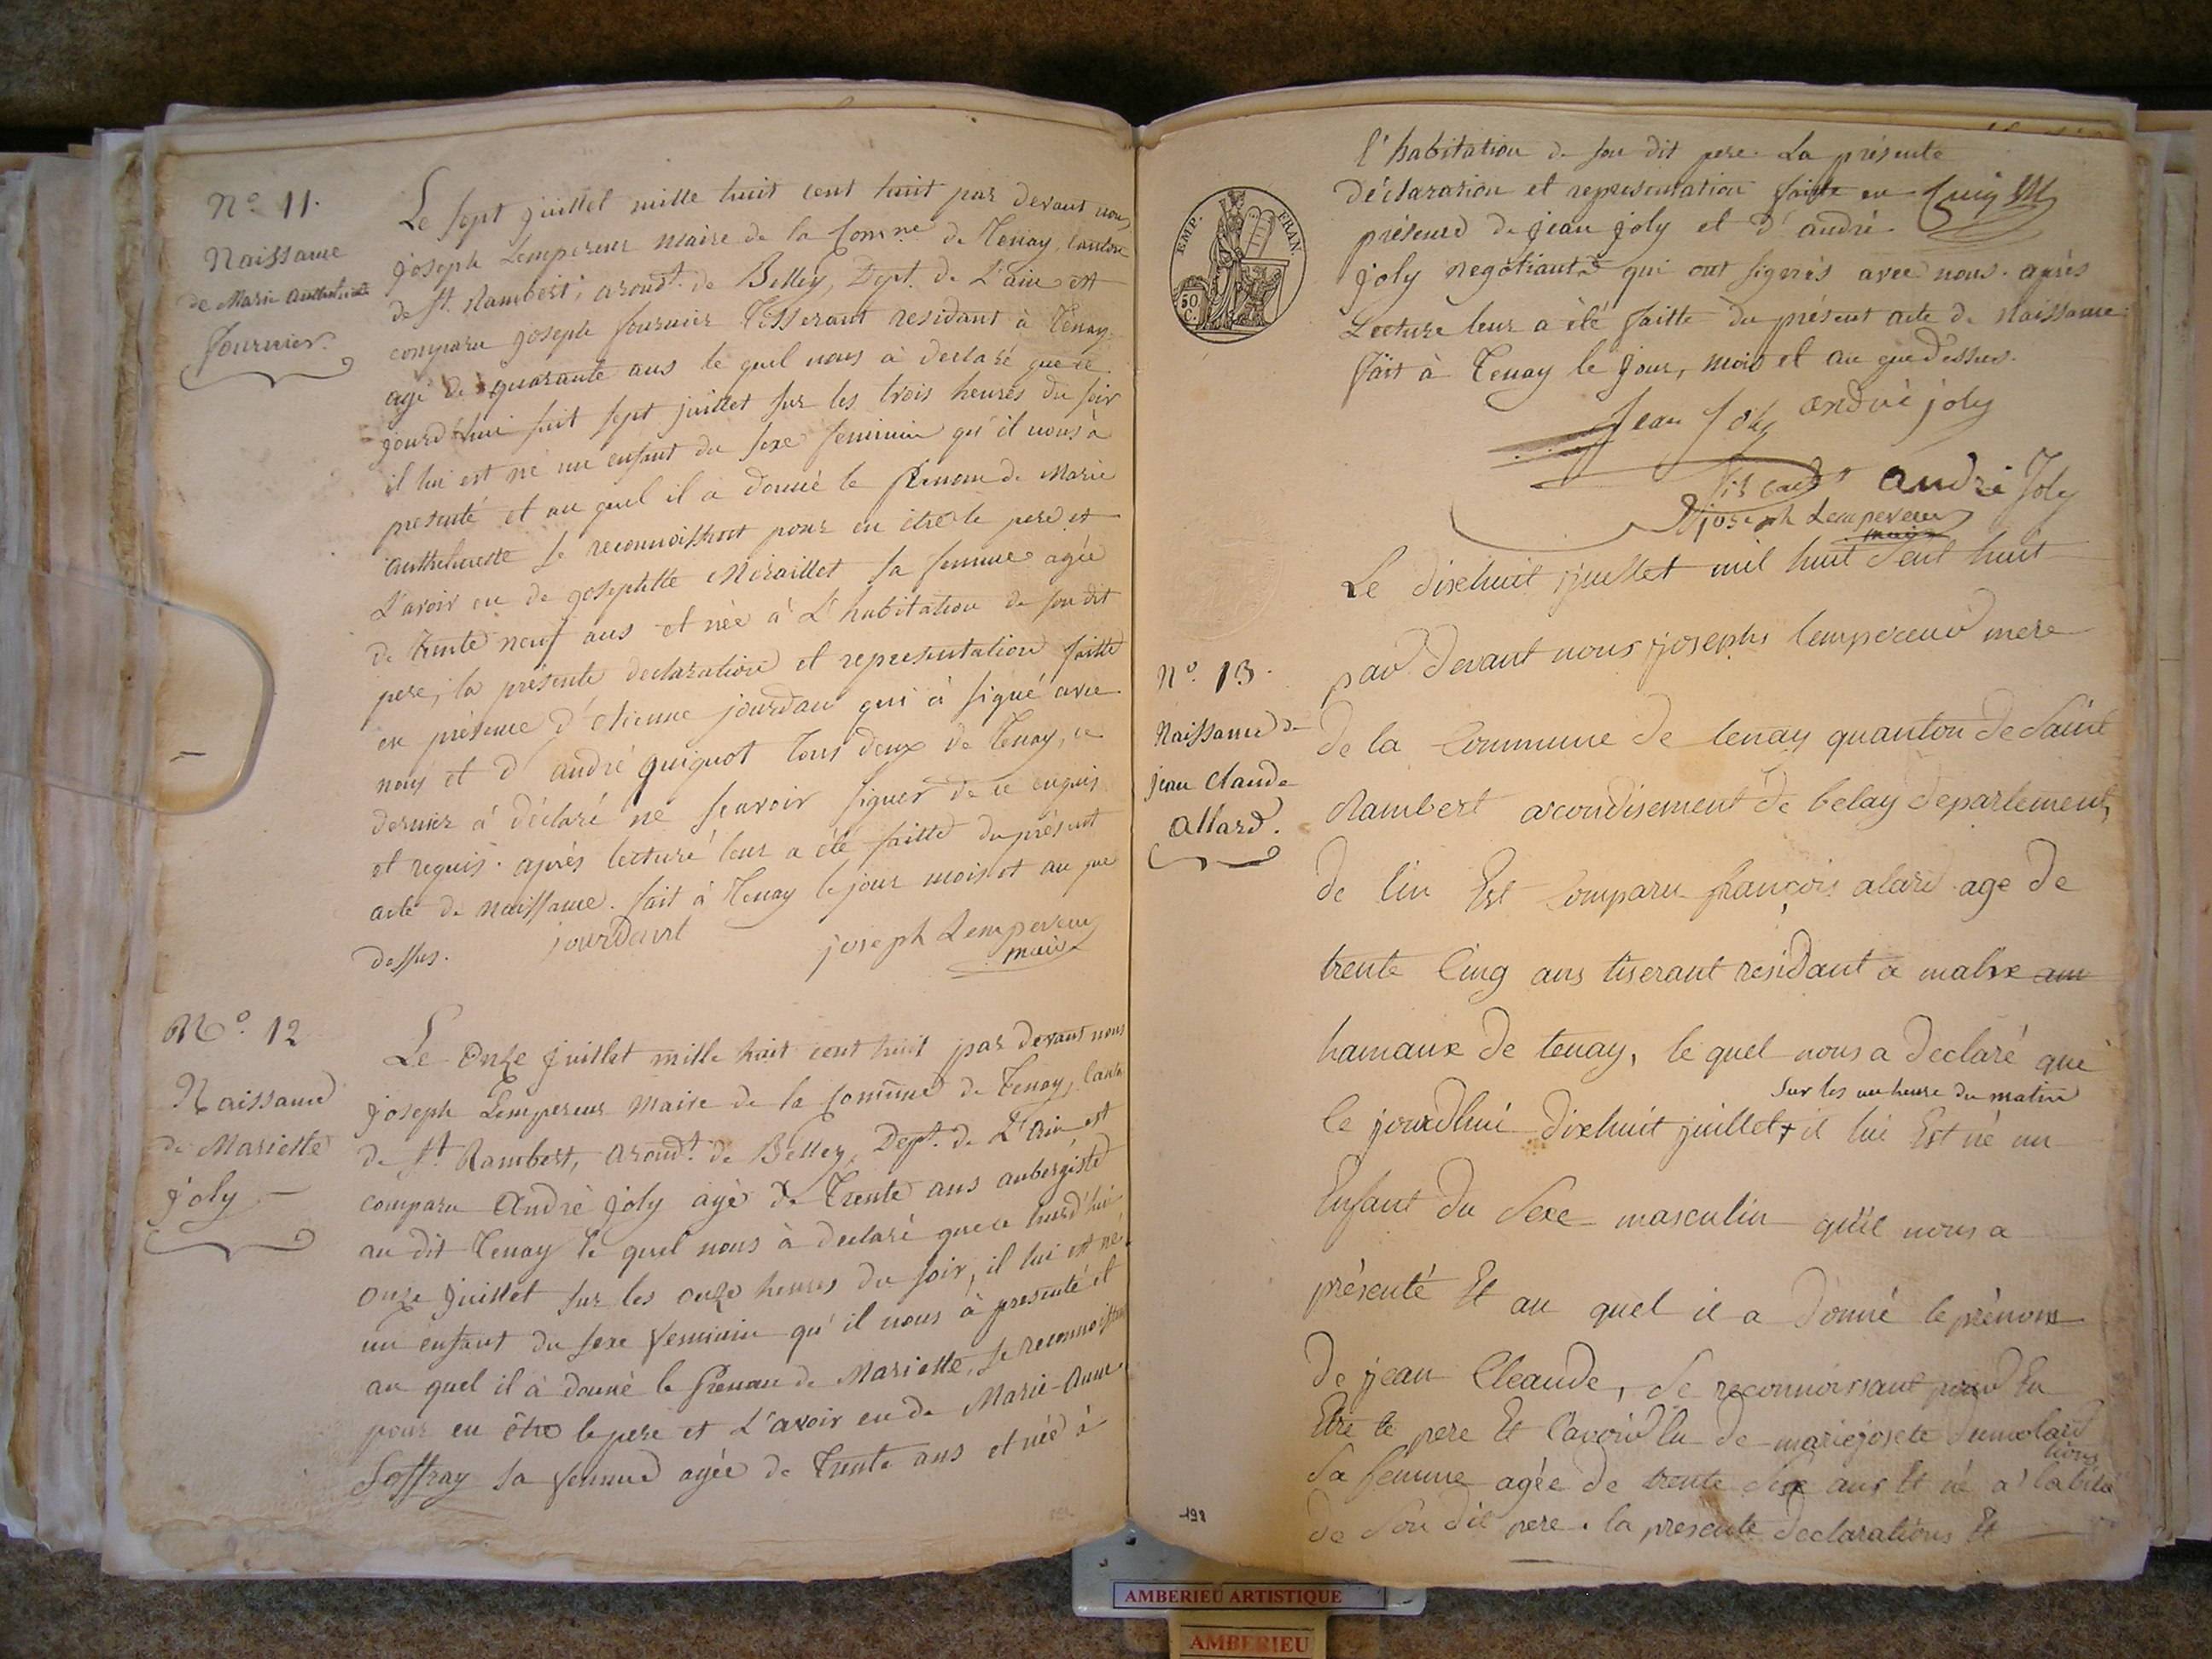 N.o 11.
Naissance
de Marie anthelmette
fournier.
Le sept juillet mille huit cent huit par devant nous
joseph Lempereur maire de la Comm.ne de Tenay, canton
de St. Rambert, arond.t de Belley, Dept. de L'ain est
comparu joseph fournier Tisserant residant à Tenay
agé de quarante ans le quel nous à declaré que ce
jourd'hui sept juillet sur les trois heures du soir
il lui est né un enfant du sexe feminin qu'il nous à
presenté et au quel il a donné le prenom de Marie
se reconnoissant pour en être le pere et
L'avoir eu de josephtte Miraillet sa femme agée
de trente neuf ans et née à L'habitation de son dit
pere, la présente declaration et representation faitte
en présence d'etienne jourdan qui à signé avec
nous et d'andré guiguot tous deux de Tenay, ce
dernier à déclaré ne scavoir signer de ce enquis
et requis. après lecture leur a été faitte du présent
acte de naissance. fait à Tenay le jour mois et an que
dessus. jourdant joseph Lempereur
maire
N.o 12
Naissance
de Mariette
joly
Le Onze juillet mille huit cent huit par devant nous
joseph Lempereur maire de la Commune de Tenay, canton
de St Rambert, arond.t de Belley, Dept. de L'Ain est
comparu André joly agé de Trente ans aubergiste
au dit Tenay le quel nous à declaré que ce jourd'hui
onze juillet sur les onze heures du soir, il lui est né
un enfant du sexe feminin qu'il nous à presenté et
au quel il à donné le Prenom de Mariette, se reconnoissant
pour en être le pere et L'avoir eu de Marie-Anne
Soffray sa femme agée de Trente ans et née à
l'habitation de son dit pere. La présente
déclaration et representation faitte en
présence de jean joly et d'andré
joly negotiant qui ont signés avec nous. après
Lecture leur a été faitte du présent acte de naissance.
fait à Tenay le jour, mois et an que dessus.
Jean Joly andré joly
andré Joly
joseph Lempereur
maire
EMP. FRAN.
50
C.
N.o 13.
Naissance de
jean Claude
Allard.
Le dixhuit juillet mil huit Sent huit
par devant nous josephs lempereur mere
de la Commune de tenay quanton de Saint
Rambert arondisement de belay departement,
de lin Est Comparu françois alard age de
trente Cinq ans tiserant residant a malix
hamaux de tenay, le quel nous a declaré que
Sur les un heure du matin
le jourdhui dixhuit juillet + il lui Est né un
Enfant du Sexe masculin quil nous a
présenté Et au quel il a donné le prénom
de jean Cleaude, Se reconnoissant pour En
Etre le pere Et lavoir Eu de mariejosete dumolard
Sa femme agée de trente Six ans Et né a labita
tions
de Son dit pere. la presente declarations Et
198
AMBERIEU ARTISTIQUE
AMBERIEU